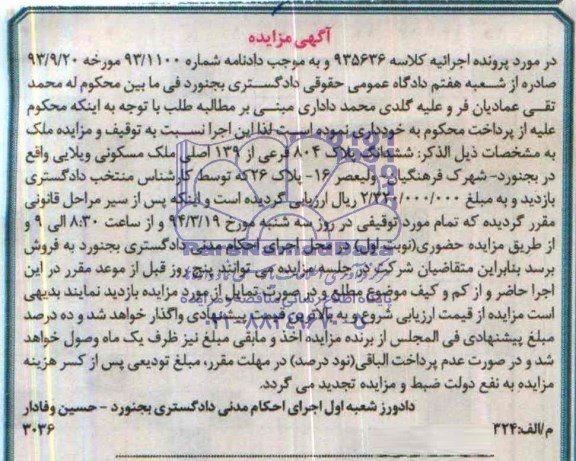 آگهی مزایده
در مورد پرونده اجرائیه کلاسه ۹۳۵۶۳۶ و به موجب دادنامه شماره ۹۳/۱۱۰۰ مورخه ۹۳/۹/۲۰
صادره از شعبه هفتم دادگاه عمومی حقوقی دادگستری بجنورد فی ما بین محکوم له محمد
تقی عمادیان فر و علیه گلدی محمد داداری مبنی بر مطالبه طلب با توجه به اینکه محکوم
علیه از پرداخت محکوم به خودداری نموده است لذا این اجرا نسبت به توقیف و مزایده ملک
به مشخصات ذیل الذکر: ششدانگ پلاک ۸۰۴ فرعی از ۱۳۹ اصلی ملک مسکونی ویلایی واقع
در بجنورد- شهرک فرهنگیان- ولیعصر ۱۶- پلاک ۲۶ که توسط کارشناس منتخب دادگستری
بازدید و به مبلغ ۲/۳۲۰/۰۰۰/۰۰۰ ریال ارزیابی گردیده است و اینکه پس از سیر مراحل قانونی
مقرر گردیده که تمام مورد توقیفی در روز سه شنبه مورخ ۹۴/۳/۱۹ و از ساعت ۸:۳۰ الی ۹ و
از طریق مزایده حضوری (نوبت اول) در محل اجرای احکام مدنی دادگستری بجنورد به فروش
برسد بنابراین متقاضیان شرکت در جلسه مزایده می توانند پنج روز قبل از موعد مقرر در این
اجرا حاضر و از کم و کیف موضوع مطلع و در صورت تمایل از مورد مزایده بازدید نمایند بدیهی
است مزایده از قیمت ارزیابی شروع و به بالاترین قیمت پیشنهادی واگذار خواهد شد و ده درصد
مبلغ پیشنهادی فی المجلس از برنده مزایده اخذ و مابقی مبلغ نیز ظرف یک ماه وصول خواهد
شد و در صورت عدم پرداخت الباقی (نود درصد) در مهلت مقرر، مبلغ تودیعی پس از کسر هزینه
مزایده به نفع دولت ضبط و مزایده تجدید می گردد.
دادورز شعبه اول اجرای احکام مدنی دادگستری بجنورد - حسین وفادار
م/الف:۳۲۴ ۳۰۳۶
ParsNamadData
پایگاه اطلاع رسانی مناقصه و مزایده
۰۲۱-۸۸۳۴۹۶۷۰-۵